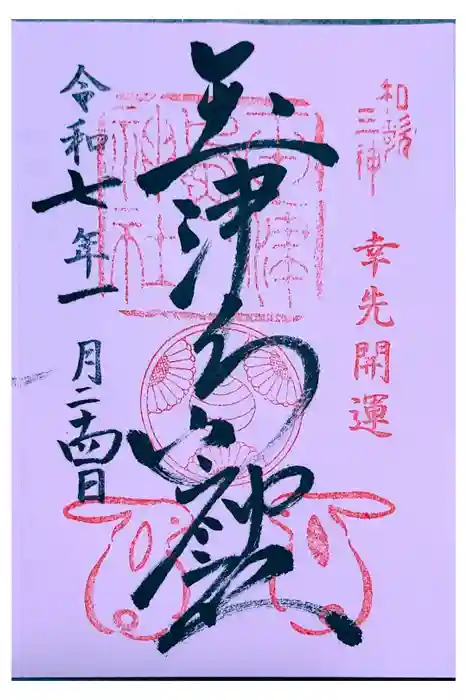 和歌
三神
幸先開運
玉津
玉津
島
神社
令和七年一月二十四日